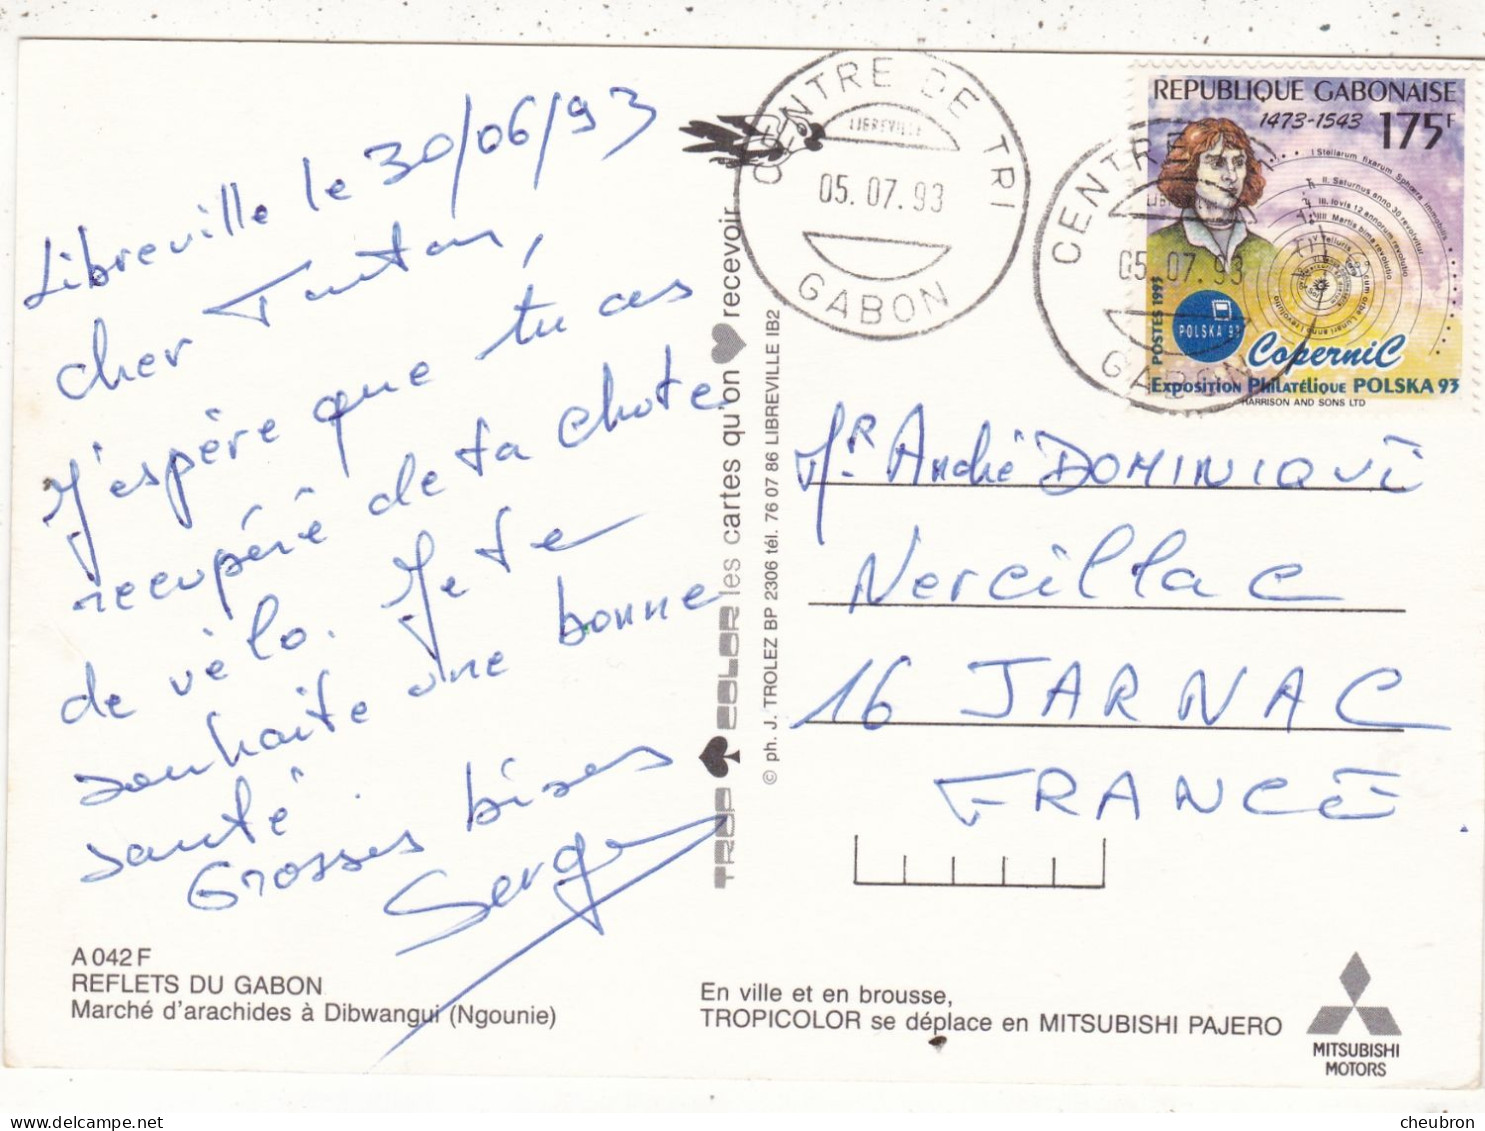 Libreville le 30/06/93
cher Tonton,
J'espère que tu as
recupéré de ta chute
de vélo. Je te
souhaite une bonne
santé.
Grosses bises
Serge
A 042 F
REFLETS DU GABON
Marché d'arachides à Dibwangui (Ngounie)
TROPICOLOR les cartes qu'on recevoir
© ph. J. TROLEZ BP 2306 tél. 76 07 86 LIBREVILLE IB2
CENTRE DE TRI
LIBREVILLE
05.07.93
GABON
CENTRE
LIBREVILLE
05.07.93
GABON
REPUBLIQUE GABONAISE
1473-1543 175F
I Stellarum fixarum Sphæra immobilis
II. Saturnus anno 30 revolvitur
III. Iovis 12 annorum revolutio
IIII Martis bima revolutio
V Telluris
POSTES 1993
POLSKA 93
CoperniC
Exposition Philatélique POLSKA 93
HARRISON AND SONS LTD
Mr. André DOMINIQUE
Nercillac
16 JARNAC
FRANCE
En ville et en brousse,
TROPICOLOR se déplace en MITSUBISHI PAJERO
MITSUBISHI
MOTORS
delcampe.net
cheubron